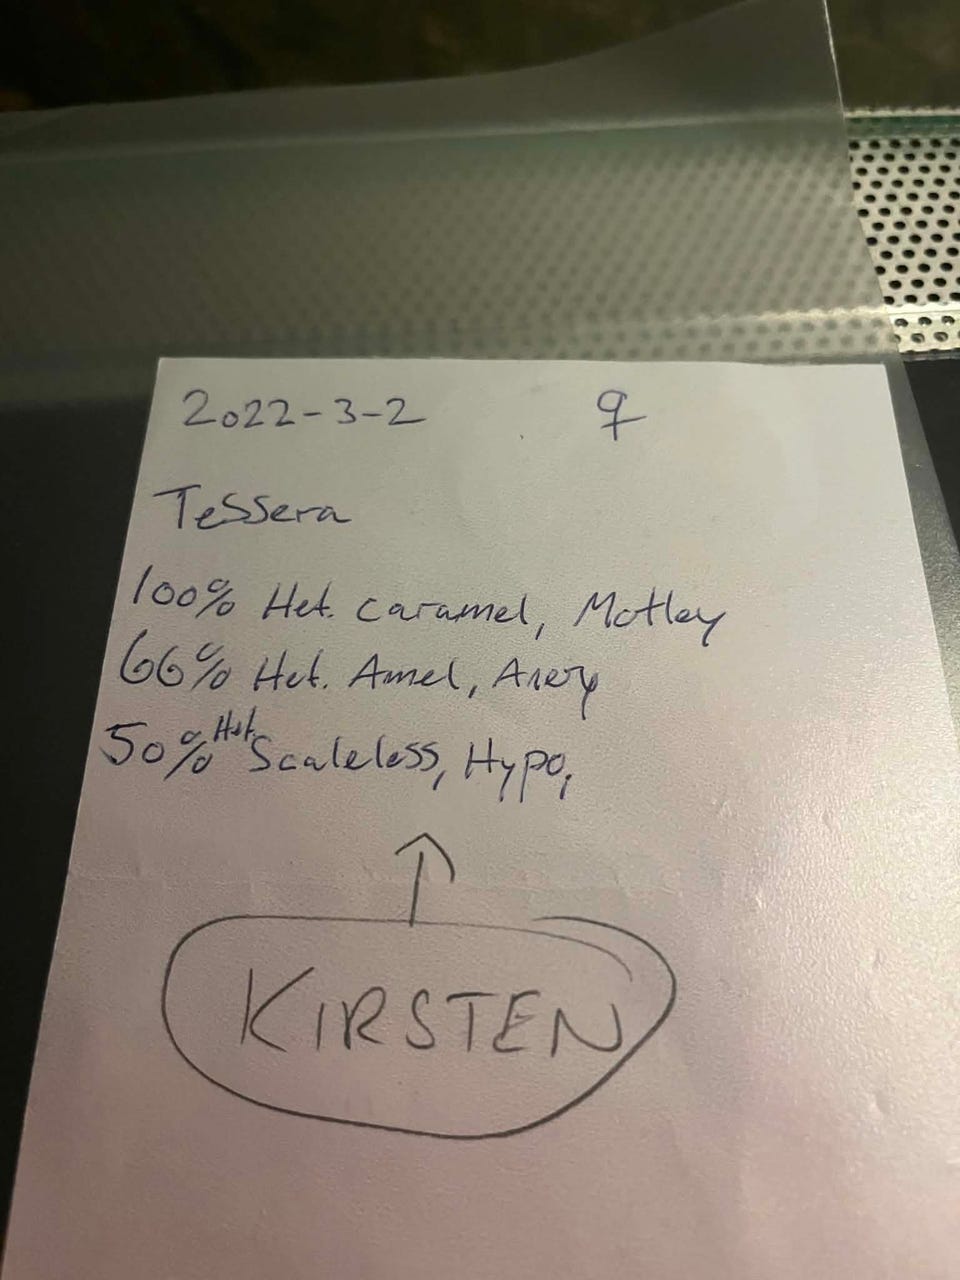 2022-3-2 ♀
Tessera
100% Het. caramel, Motley
66% Het. Amel, Anery
50% Het. Scaleless, Hypo,
KIRSTEN